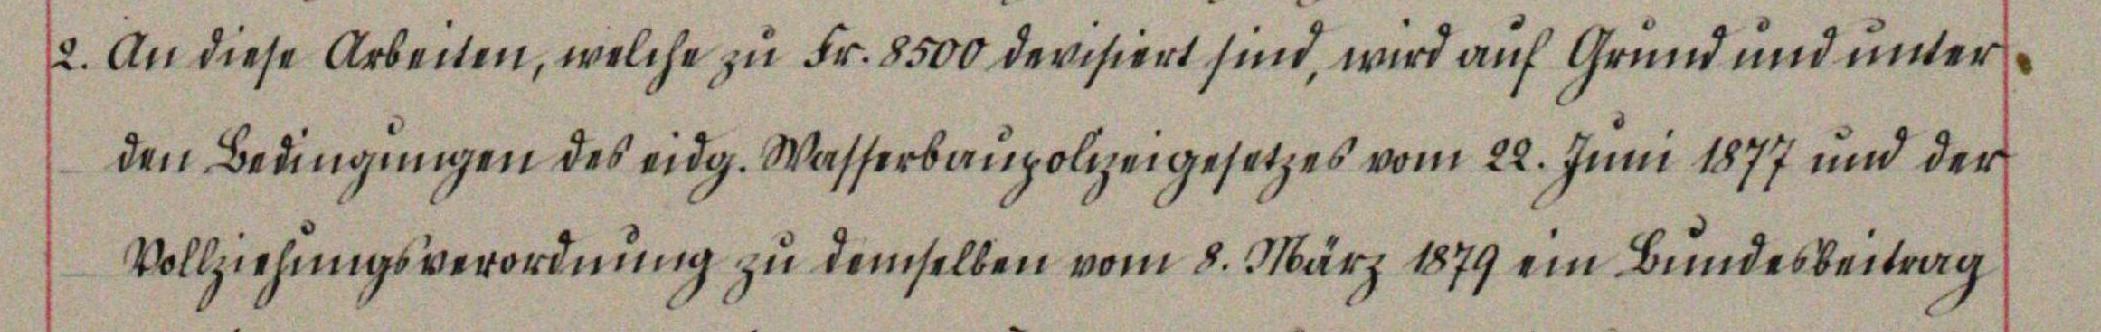 2. An diese Arbeiten, welche zu Fr. 8500 devisiert sind, wird auf Grund und unter
den Bedingungen des eidg. Wasserbaupolizeigesetzes vom 22. Juni 1877 und der
Vollziehungsverordnung zu demselben vom 8. März 1879 ein Bundesbeitrag